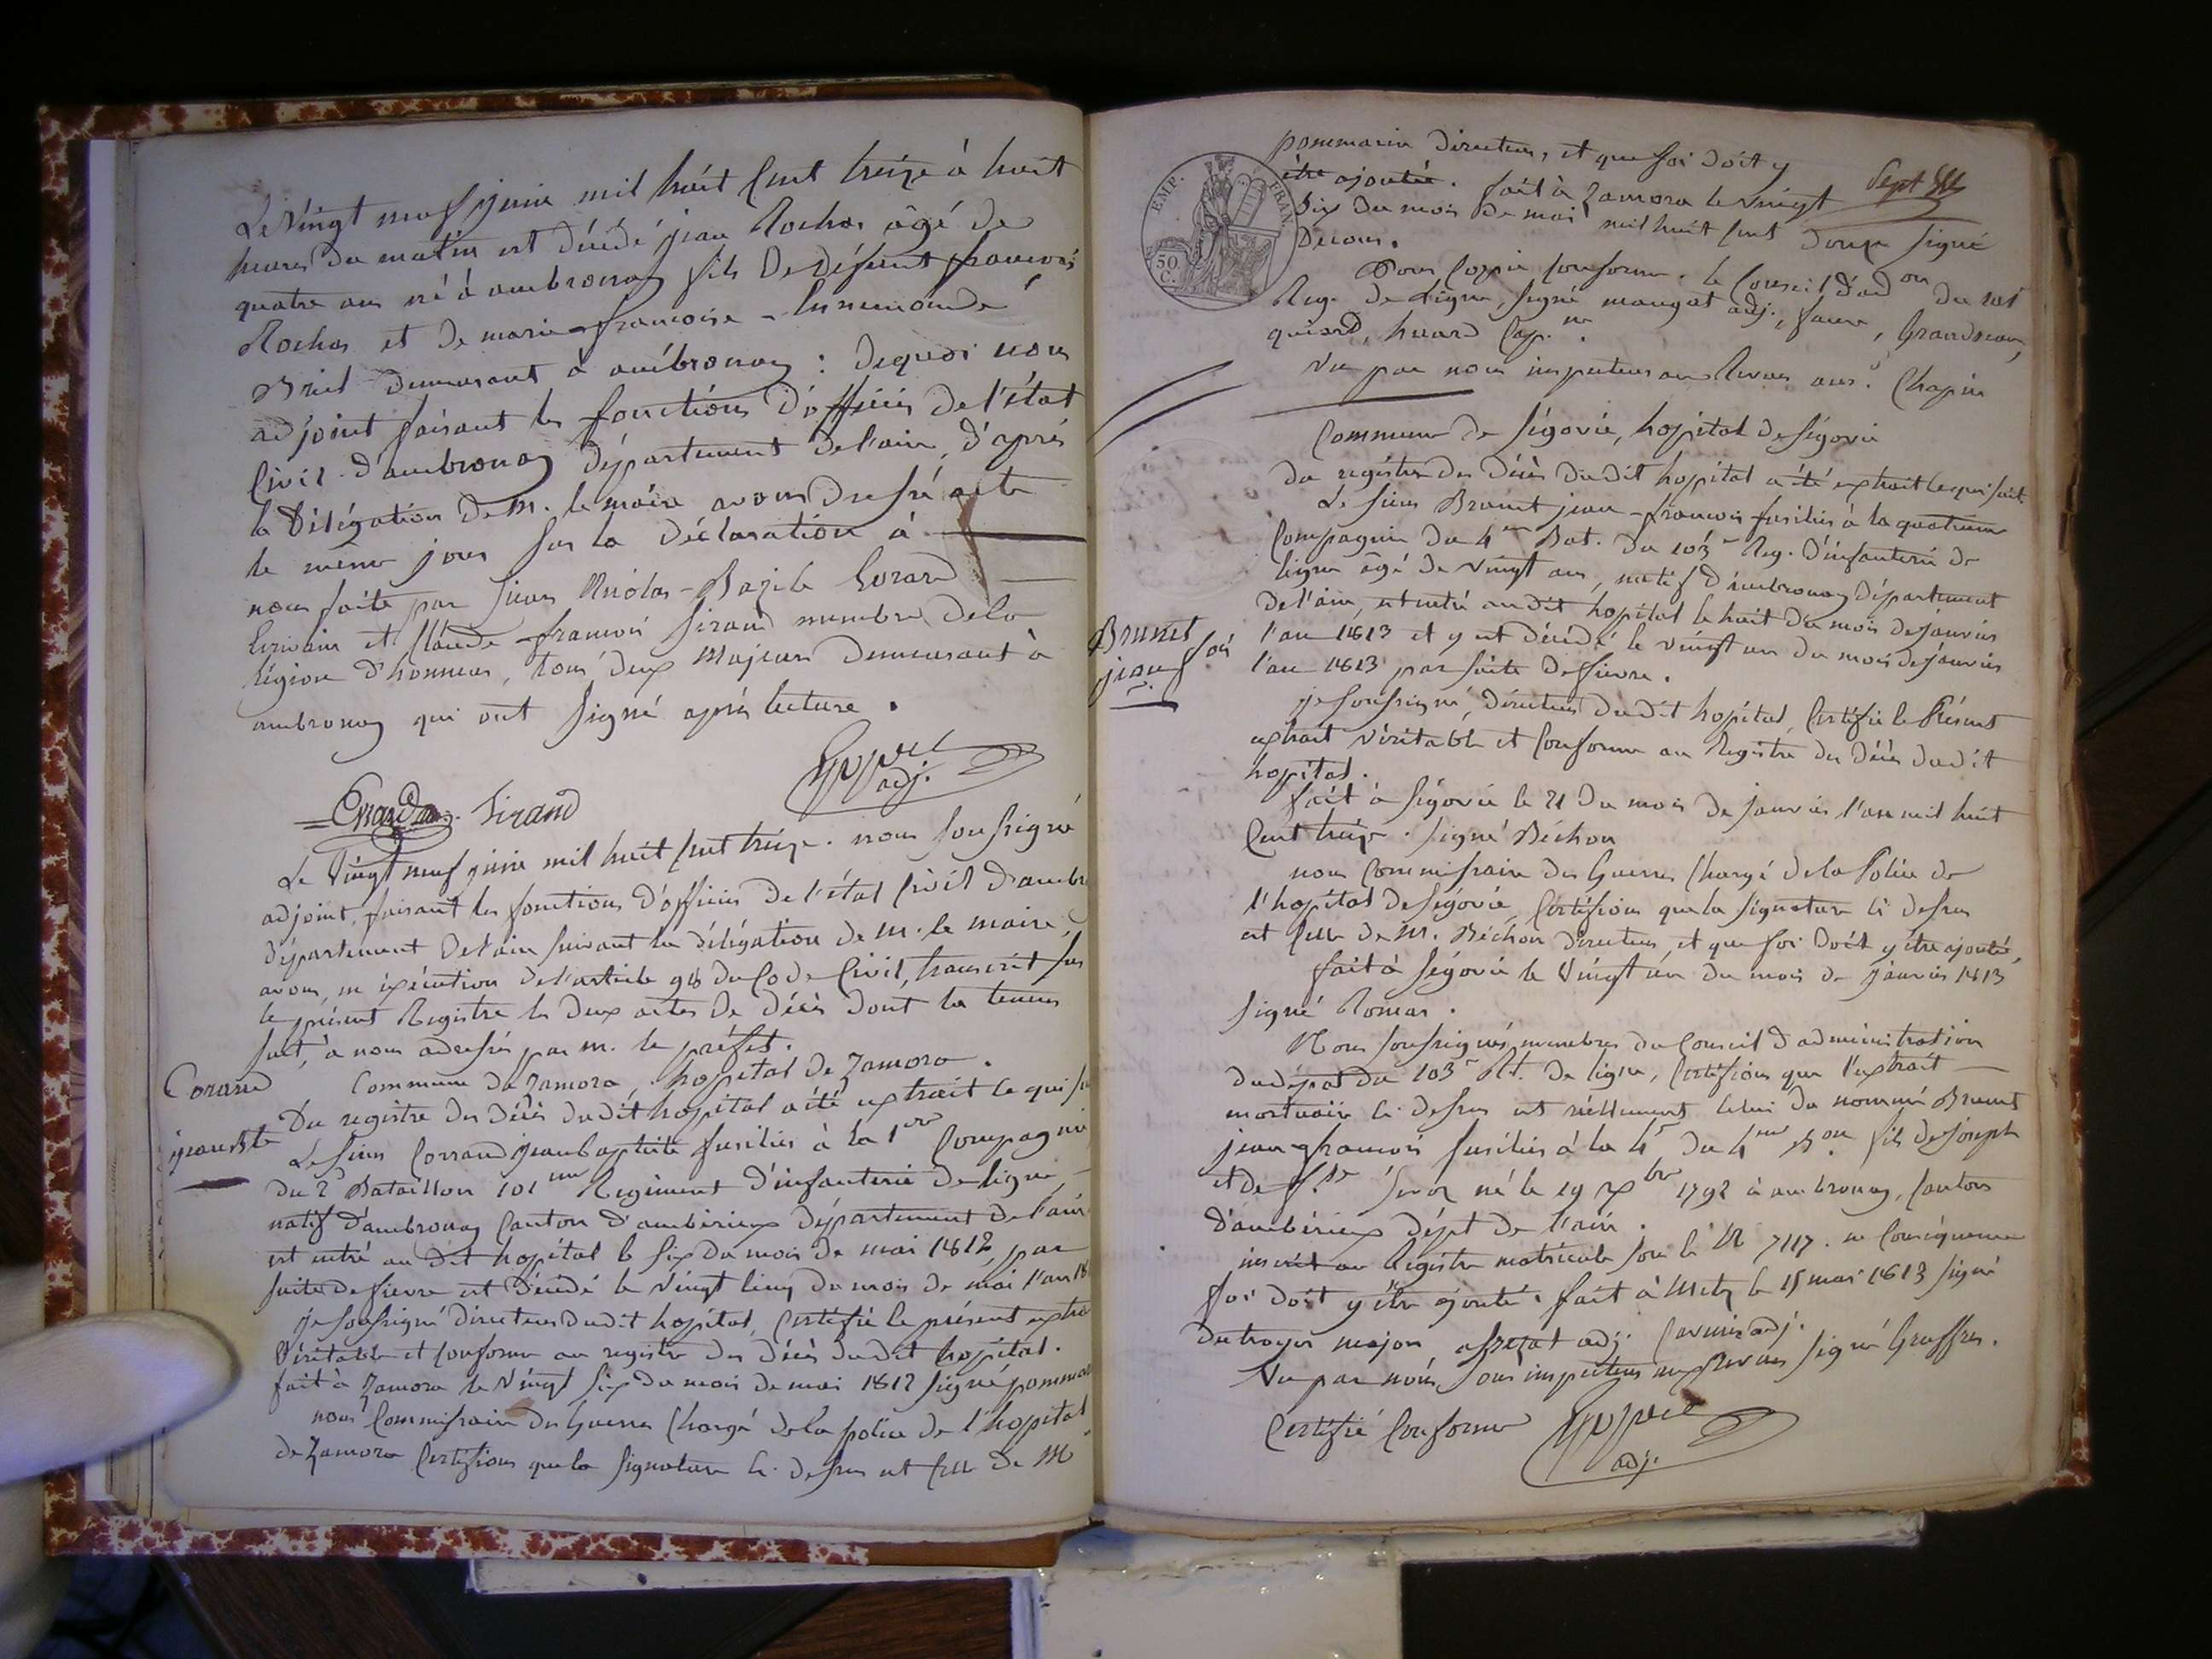 Le Vingt neuf juin mil huit Cent treize à huit
heures du matin est décédé jean Rochas âgé de
quatre ans né à ambronay fils de défunt françois
Rochas et de marie-françoise
demeurant à ambronay : dequoi nous
adjoint faisant les fonctions d'officier de l'état
Civil d'ambronay département de l'ain, d'après
la Délégation de M. le maire avons dressé acte
le même jour sur la déclaration à
nous faite par sieurs Nicolas-Bazile Evrard
Ecrivain et Claude françois Sirand membre de la
légion d'honneur, tous deux Majeurs demeurant à
ambronay qui ont signé après lecture.
adj.
Sirand
Le Vingt neuf juin mil huit Cent treize. nous soussigné
adjoint, faisant les fonctions d'officier de l'état Civil d'ambr
département de l'ain suivant la délégation de M. le maire,
avons, en exécution de l'article 98 du Code Civil, transcrit sur
le présent Registre les deux actes de décès dont la teneur
suit, à nous adressés par m. le préfet.
Corand
jean Bte
Commune de Zamora, hopital de Zamora.
Du registre des décès dudit hopital a été extrait ce qui su
Le sieur Corrand jean baptiste fusilier à la 1ere Compagnie
du 2e Bataillon 101me Regiment d'infanterie de ligne
natif d'ambronay Canton d'ambérieux département de l'ain
est entré au dit hopital le six du mois de mai 1812, par
suite de fievre est décédé le vingt cinq du mois de mai l'an 18
je soussigné directeur dudit hopital, Certifie le présent extra
Véritable et conforme au registre des décès dudit hopital.
fait à Zamora le Vingt six du mois de mai 1812 signé pomma
nous Commissaire des Guerres Chargé de la police de l'hopital
de Zamora Certifions que la signature ci-dessus est celle de M
EMP. FRAN.
50
C.
Sept
pommarin directeur, et que foi doit y
être ajoutée. fait à Zamora le vingt
six du mois de mai mil huit Cent douze signé
Pour Copie conforme. le Conseil d'adon du 101
Reg. de Ligne, signé mangat adj., faure, Grandjean,
huard Cap.ne.
Vu par nous inspecteur aux Revues Chapin
Brunet
jean fois
Commune de Ségovie, hopital de Ségovie
du registre des décès dudit hopital a été extrait ce qui suit.
Le sieur Brunet jean-françois fusilier à la quatrieme
Compagnie du 4me Bat. du 103e Reg. d'infanterie de
ligne âgé de vingt ans, natif d'ambronay département
de l'ain, est entré au dit hopital le huit du mois de janvier
l'an 1813 et y est décédé le vingt un du mois de janvier
l'an 1813 par suite de fievre.
je soussigné, directeur dudit hopital, Certifie le Présent
extrait véritable et Conforme au Registre des décès dudit
hopital.
fait à Ségovie le 21 du mois de janvier l'an mil huit
Cent treize. signé Béchon
nous Commissaire des Guerres Chargé de la Police de
l'hopital de Ségovie, Certifions que la signature ci dessus
est Celle de M. Béchon directeur, et que foi doit y être ajoutée,
fait à Ségovie le Vingt un du mois de janvier 1813
signé Romar.
Nous soussignés, membres du Conseil d'administration
du dépot du 103e Rt. de ligne, Certifions que l'extrait
mortuaire ci-dessus est réellement Celui du nommé Brunet
jean françois fusilier à la 4e du 4me Bon. fils de joseph
et de né le 19 xbre 1792 à ambronay, Canton
d'ambérieux dépt de l'ain.
inscrit au Registre matricule sous le N 7117. en Conséquence
foi doit y être ajoutée. fait à Metz le 15 mai 1813 signé
major adj. adj.
Vu par nous, sous inspecteur aux Revues signé
Certifié Conforme
adj.